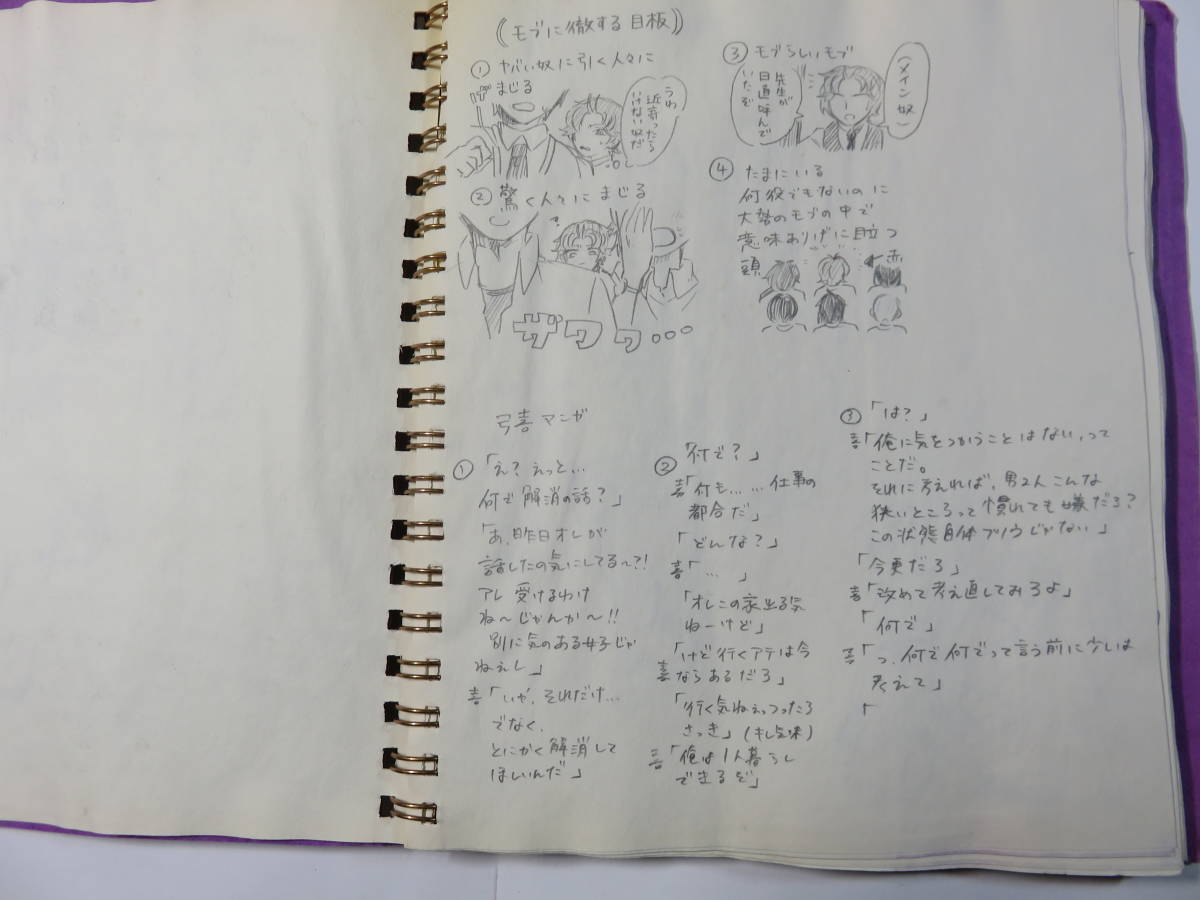 《モブに徹する目板》
① ヤバい奴に引く人々に
まじる
うわ
近寄ったら
いけない奴だ
② 驚く人々にまじる
?
ザワッ…
③ モブらしいモブ
(メイン奴)
先生が
日直呼んで
いたぞ
④ たまにいる
何役でもないのに
大勢のモブの中で
意味ありげに目立つ
頭
赤
弓喜マンガ
①「え?えっと…
何で解消の話?」
「あ、昨日オレが
話したの気にしてる〜?!
アレ受けるわけ
ね〜じゃんか〜!!
別に気のある女子じゃ
ねぇし」
喜「いや、それだけ…
でなく、
とにかく解消して
ほしいんだ」
②「何で?」
喜「何も……仕事の
都合だ」
「どんな?」
喜「…」
「オレこの家出る気
ねーけど」
喜「けど行くアテは今
ならあるだろ」
「行く気ねぇっつったろ
さっき」(キレ気味)
喜「俺は1人暮らし
できるぞ」
③「は?」
喜「俺に気をつかうことはない、って
ことだ。
それに考えれば、男2人こんな
狭いところって慣れても嫌だろ?
この状態自体フツウじゃない」
「今更だろ」
喜「改めて考え直してみろよ」
「何で」
喜「っ、何で何でって言う前に少しは
考えて」
「